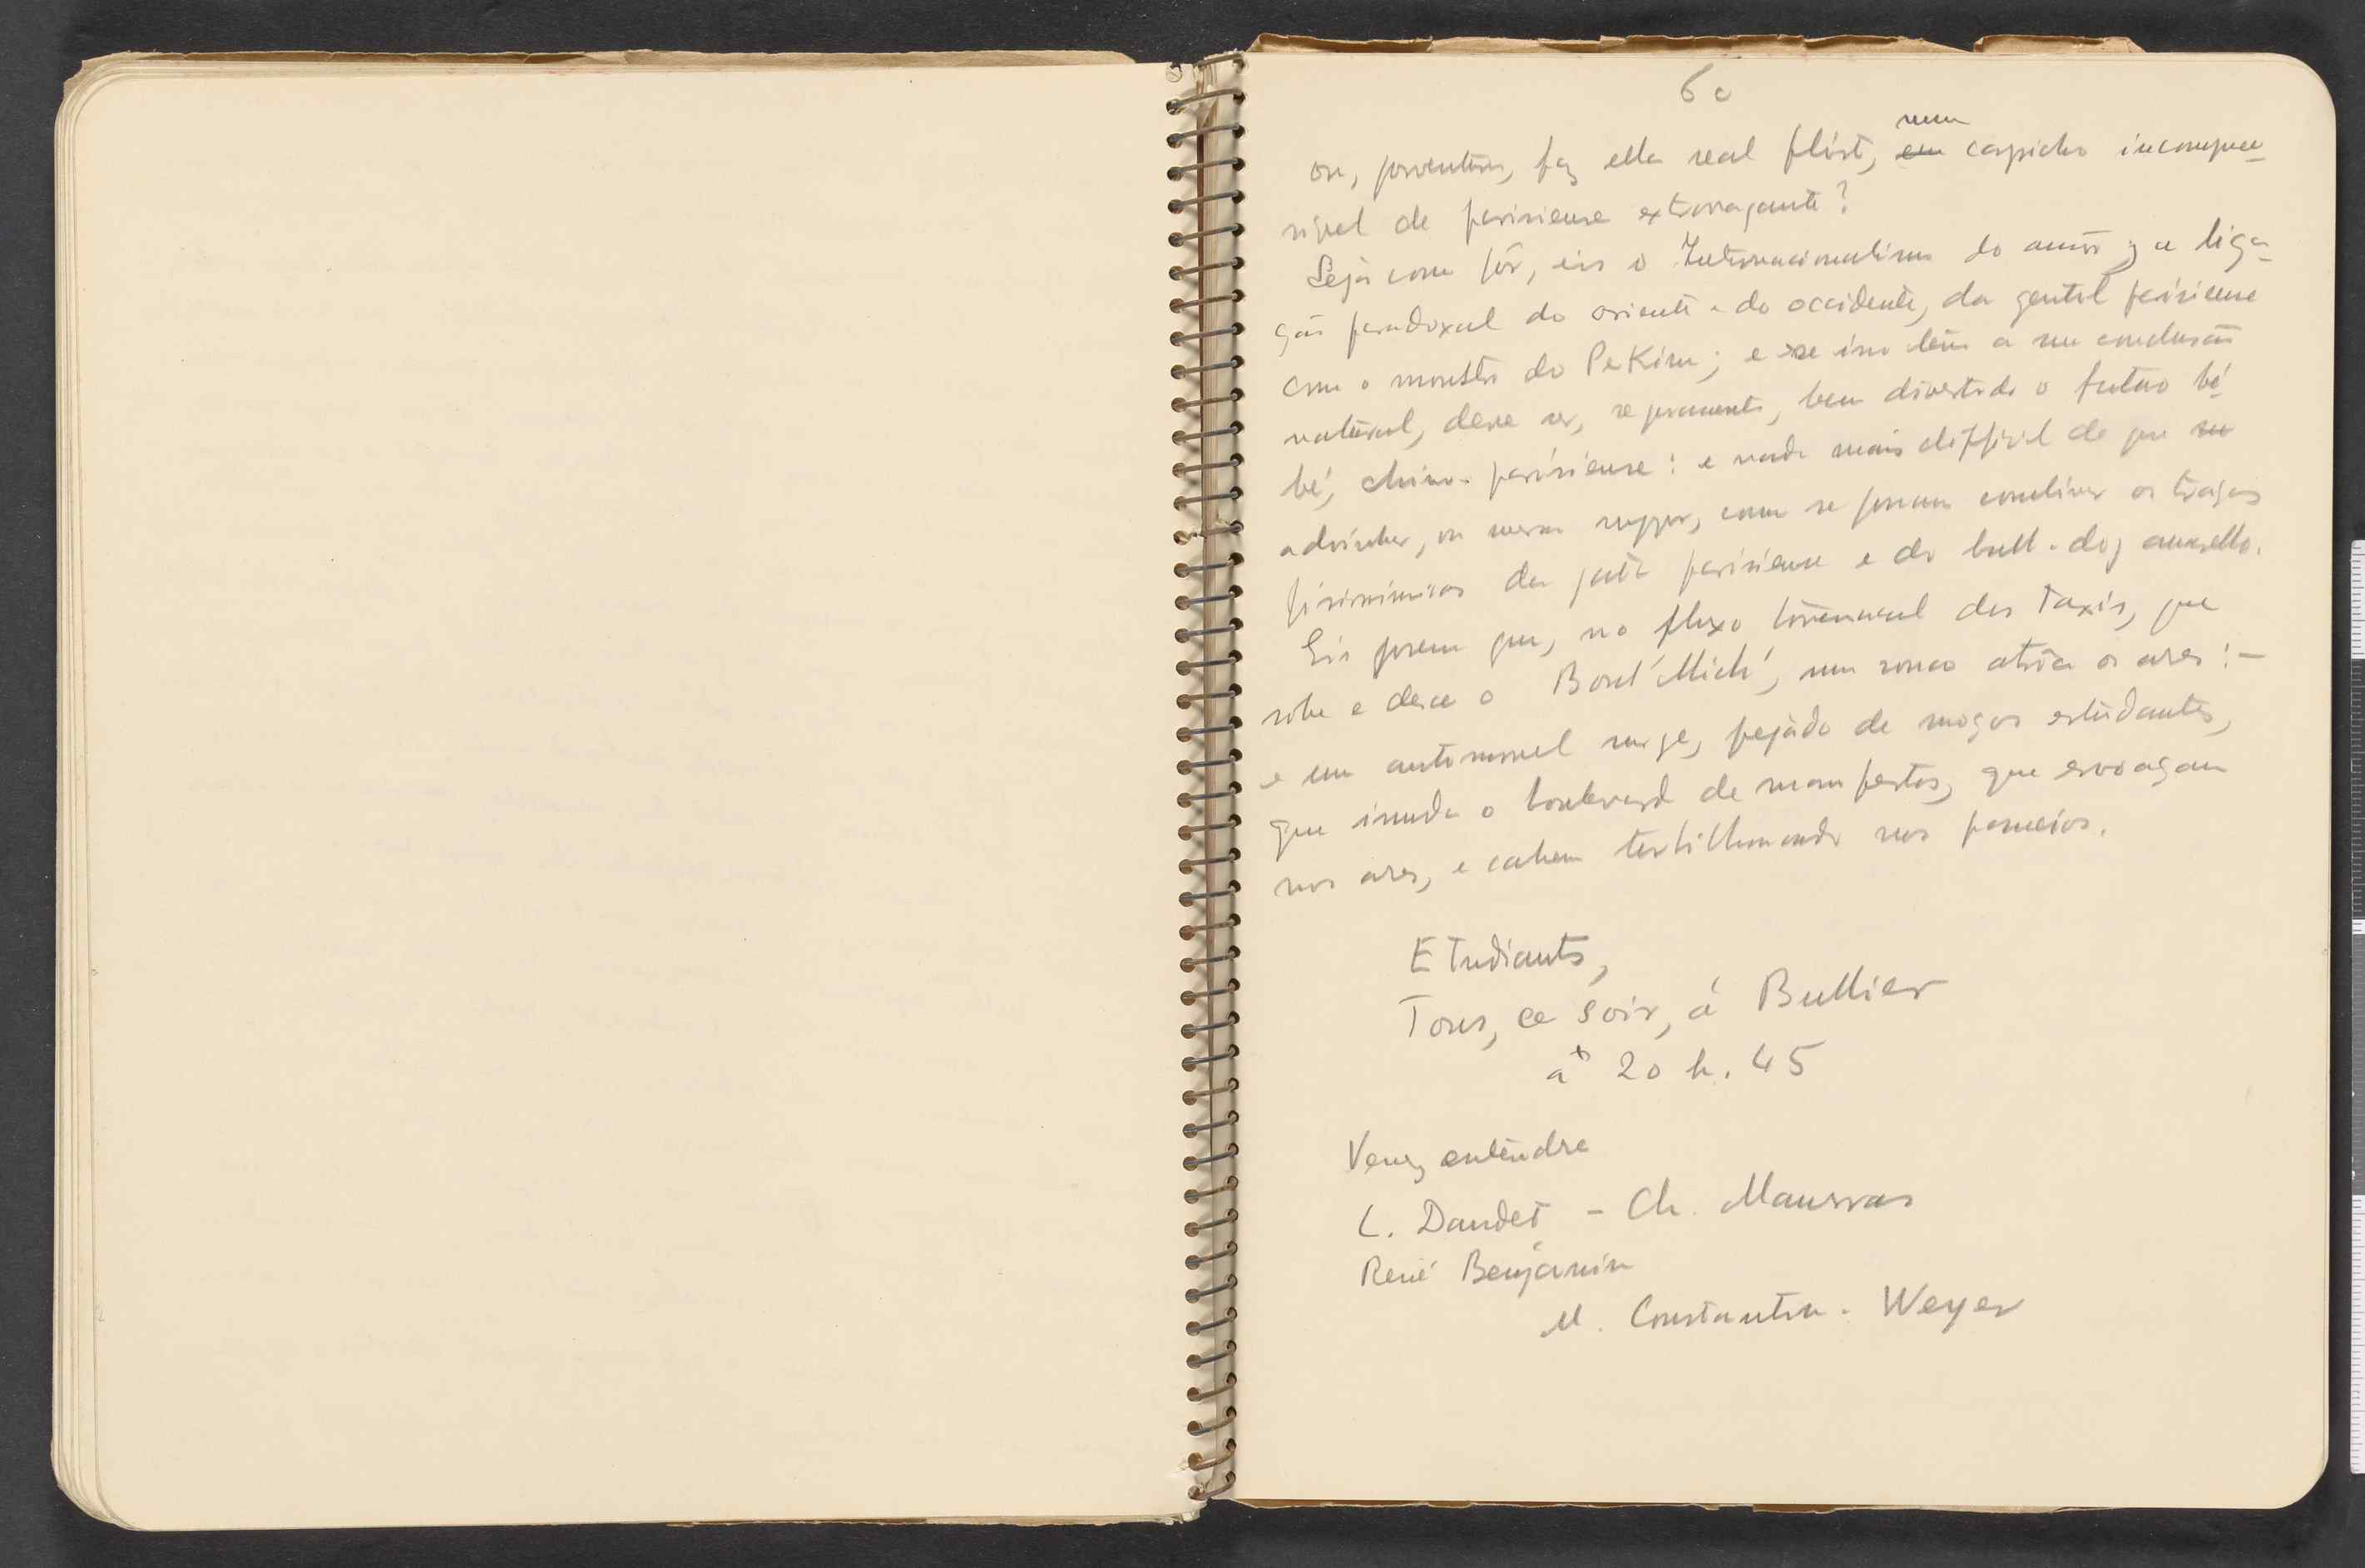 60
ou, porventura, faz ella real flirt, num em caspicho incompreen-
sivel de parisiense extravagante?
Seja como fôr, eis o Internacionalismo do amôr; a liga-
ção paradoxal do oriente e do occidente, da gentil parisiense
com o monstro do PeKim; e se isso têm a sua conclusão
natural, deve ser, seguramente, bem divertido o futuro bé-
bé, chino-parisiense: e nada mais difficil de que
adivinhar, ou mesmo suppor, como se possam conciliar os traços
fisionimicos da gata parisiense e do bull-dog amarello.
Eis porem que, no fluxo torrencial dos Taxis, que
sobe e desce o Boul' Mich', um ronco atrôa os ares: —
e um automovel surge, pejàdo de moços estudantes,
que inunda o boulevard de manifestos, que esvoaçam
nos ares, e cahem terbilhonando nos passeios.
Etudiants,
Tous, ce soir, á Bullier
à 20 h. 45
Venez entendre
L. Daudet - Ch. Maurras
René Benjamin
M. Constantin-Weyer